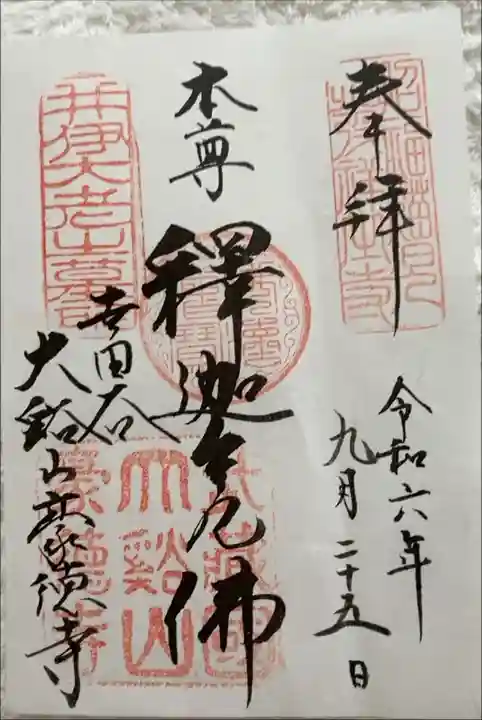 奉拝
招福猫児
令和六年
九月二十五日
本尊
釋迦牟尼佛
武藏國
大谿山
豪德寺
井伊大老之墓所
世田谷
大谿山豪徳寺